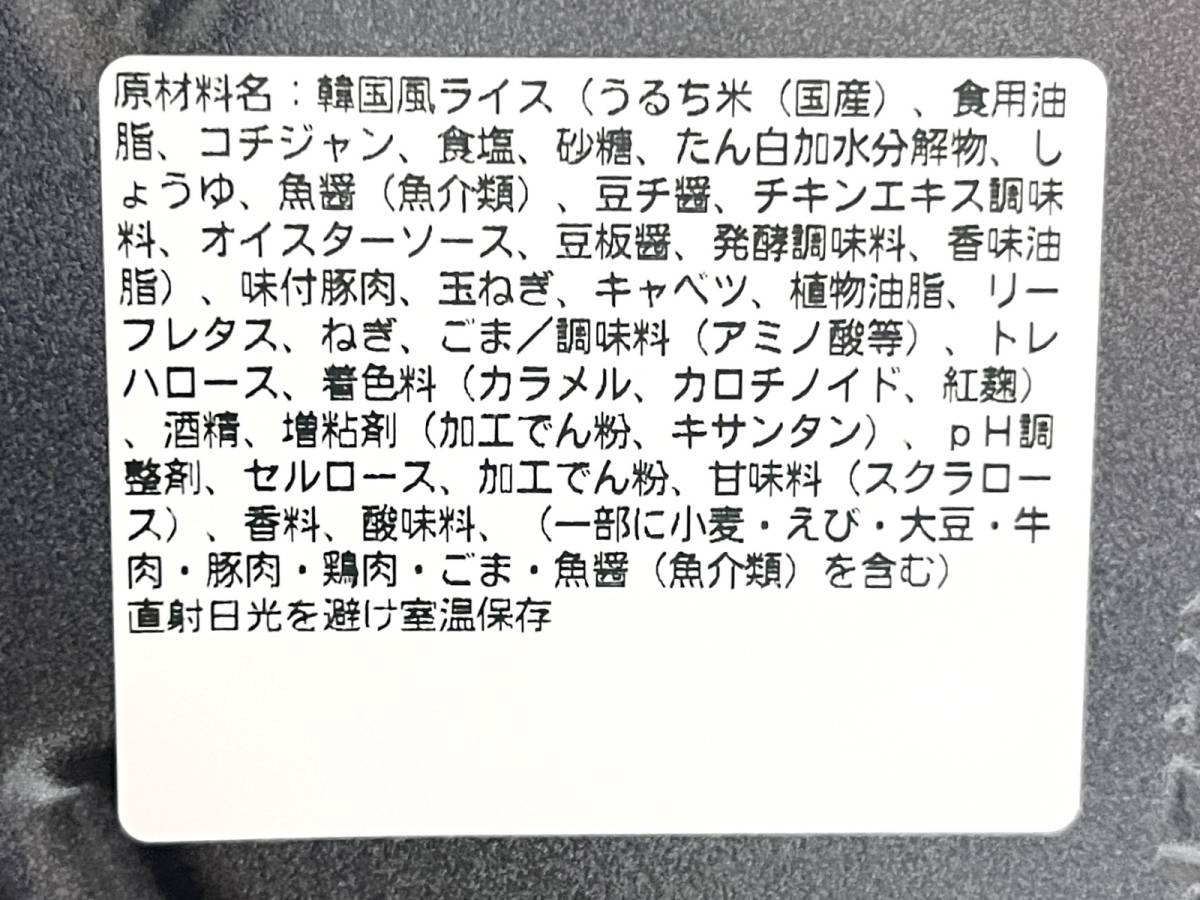 原材料名：韓国風ライス（うるち米（国産）、食用油
脂、コチジャン、食塩、砂糖、たん白加水分解物、し
ょうゆ、魚醤（魚介類）、豆チ醤、チキンエキス調味
料、オイスターソース、豆板醤、発酵調味料、香味油
脂）、味付豚肉、玉ねぎ、キャベツ、植物油脂、リー
フレタス、ねぎ、ごま／調味料（アミノ酸等）、トレ
ハロース、着色料（カラメル、カロチノイド、紅麹）
、酒精、増粘剤（加工でん粉、キサンタン）、ｐＨ調
整剤、セルロース、加工でん粉、甘味料（スクラロー
ス）、香料、酸味料、（一部に小麦・えび・大豆・牛
肉・豚肉・鶏肉・ごま・魚醤（魚介類）を含む）
直射日光を避け室温保存